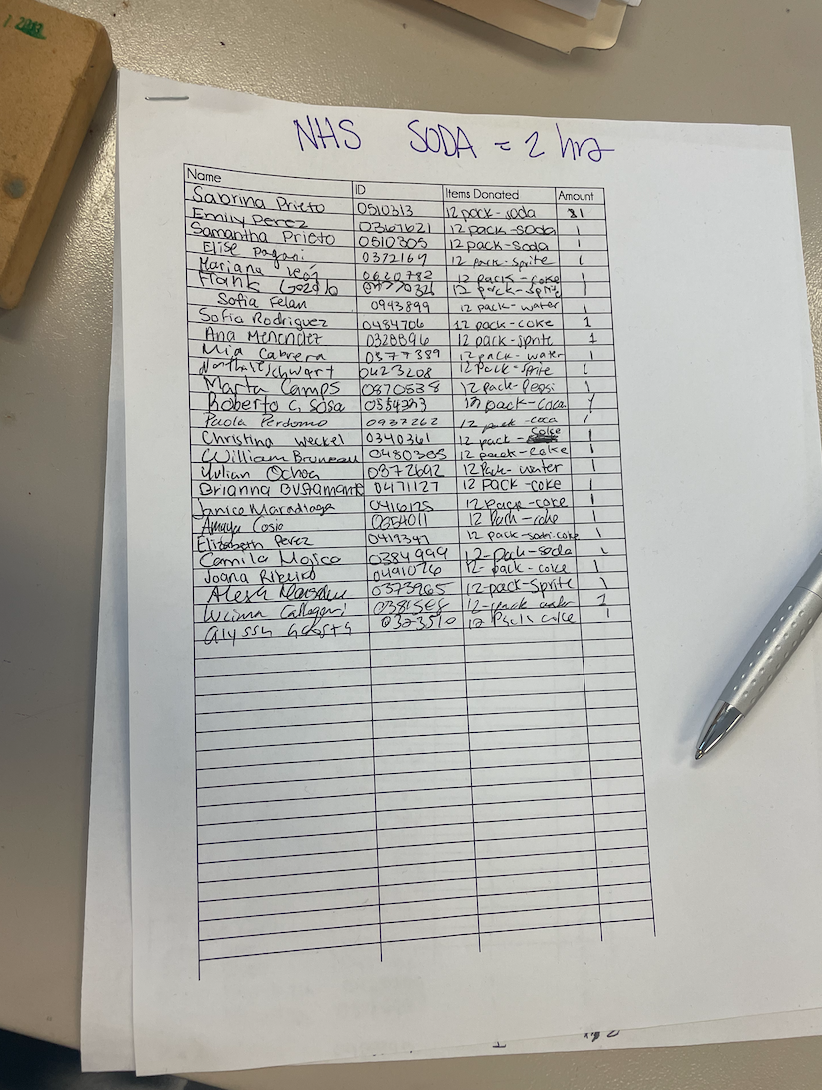 NHS SODA = 2 hrs
Name ID Items Donated Amount
Sabrina Prieto 0510313 12 pack-soda 1
Emily Perez 0367621 12 pack-soda 1
Samantha Prieto 0510305 12 pack-soda 1
Elise Pagani 0372169 12 pack-sprite 1
Mariana León 0620782 12 pack-coke 1
Frank 12 pack-sprite 1
Sofia Felan 0943899 12 pack-water 1
Sofia Rodriguez 0484706 12 pack-coke 1
Ana Menendez 0328896 12 pack-sprite 1
Mia Cabrera 0377389 12 pack-water 1
0423208 12 Pack-sprite 1
Marta Camps 0870538 12 pack-Pepsi 1
Roberto C. Sosa 12 pack-coca 1
Paola Perdomo 0937262 12 pack-coca 1
Christina Weckel 0340361 12 pack- 1
William Bruneau 0480385 12 pack-coke 1
Yulian Ochoa 0372692 12 Pack-water 1
Brianna Bustamante 0471127 12 PACK-coke 1
Janice Maradiaga 0416125 12 pack-coke 1
Amaya Cosio 0354011 12 Pack-coke 1
Elizabeth Perez 0419347 12 pack- 1
Camila Mojica 0384999 12-Pack-soda 1
Joana Ribeiro 0491076 12- pack-coke 1
0373965 12-pack-Sprite 1
12-pack water 1
Alyssa 0323510 12 Pack coke 1